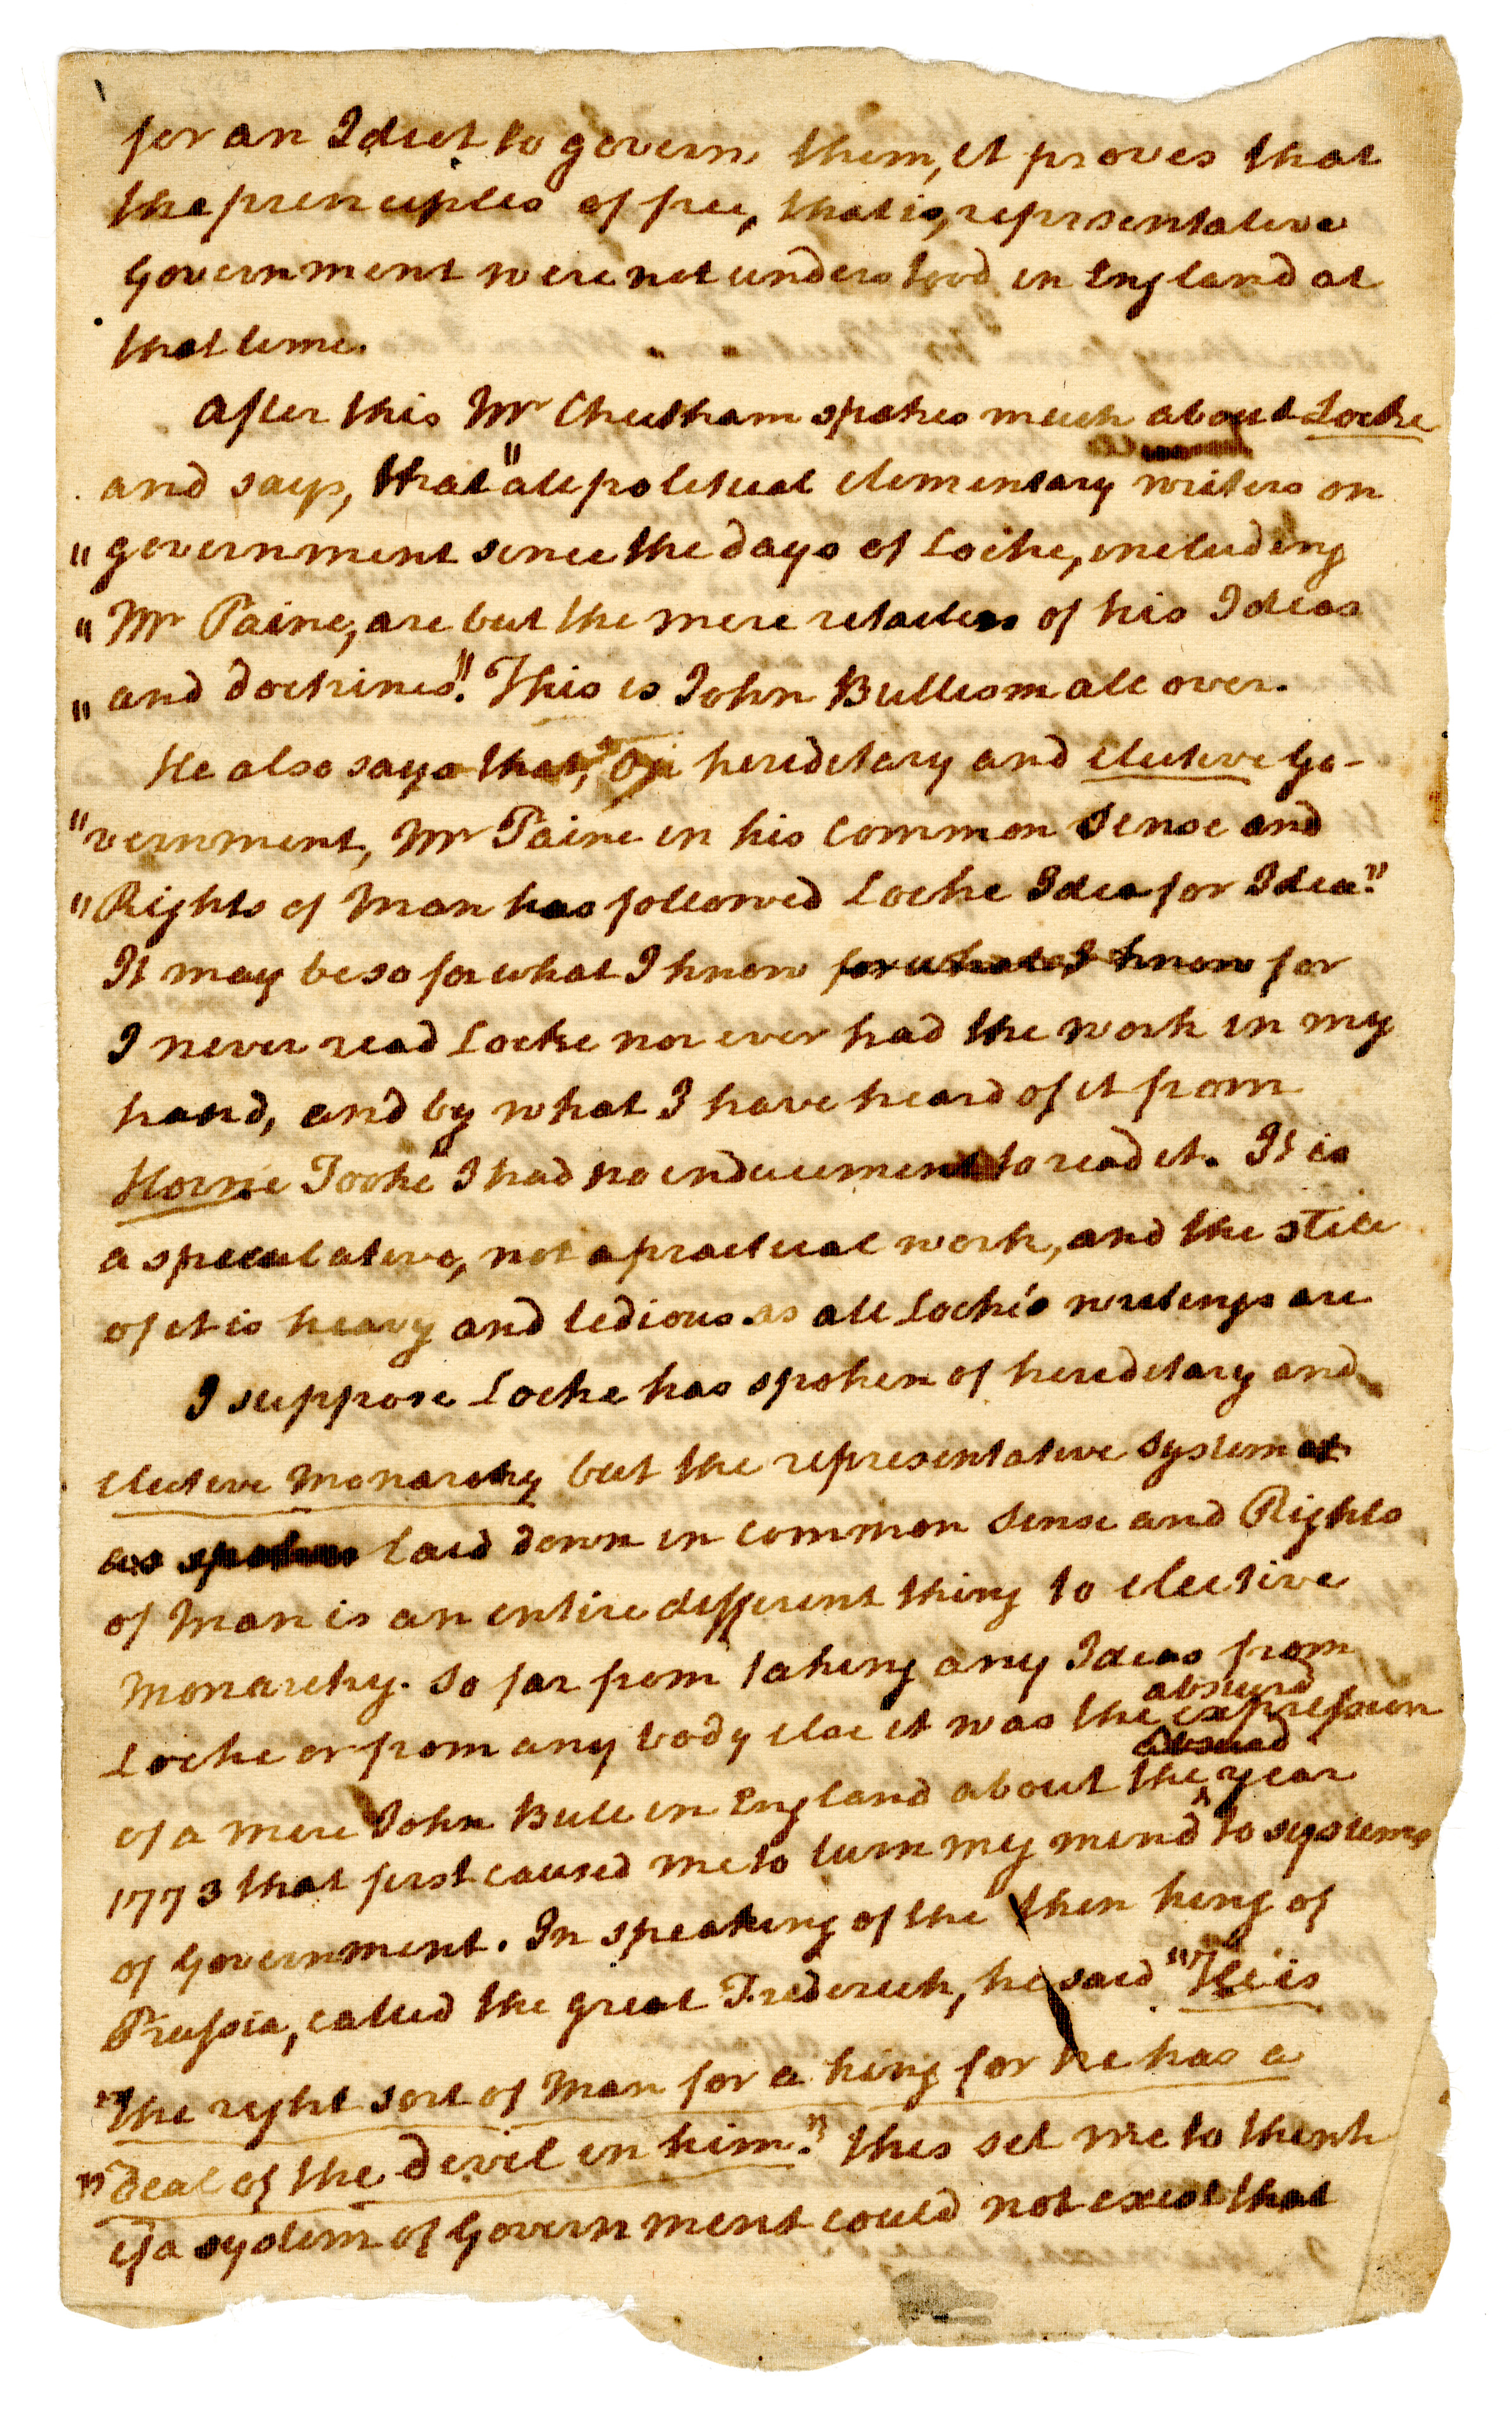 for an Idiot to govern them, it proves that
the principles of free, that is, representative
Government were not understood in England at
that time.
After this Mr Cheetham spakes much about Locke
and says, that "all political elementary writers on
" government since the days of Locke, including
" Mr Paine, are but the mere retailers of his Ideas
" and doctrines." This is John Bullism all over.
He also says that, "On hereditary and elective Go-
" vernment, Mr Paine in his Common Sense and
" Rights of Man has followed Locke Idea for Idea."
It may be so for what I know for what I know for
I never read Locke nor ever had the work in my
hand, and by what I have heard of it from
Horne Tooke I had no inducement to read it. It is
a speculative, not a practical work, and the stile
of it is heavy and tedious as all Locke's writings are
I suppose Locke has spoken of hereditary and
elective Monarchy but the representative system
as laid down in Common Sense and Rights
of Man is an entire different thing to elective
Monarchy. So far from taking any Ideas from
absurd
Locke or from any body else it was the expression
absurd
of a mere John Bull in England about the year
1773 that first caused me to turn my mind to systems
of Government. In speaking of the then king of
Prussia, called the great Frederick, he said "He is
"the right sort of Man for a king for he has a
" deal of the devil in him." this set me to think
if a system of Government could not exist that